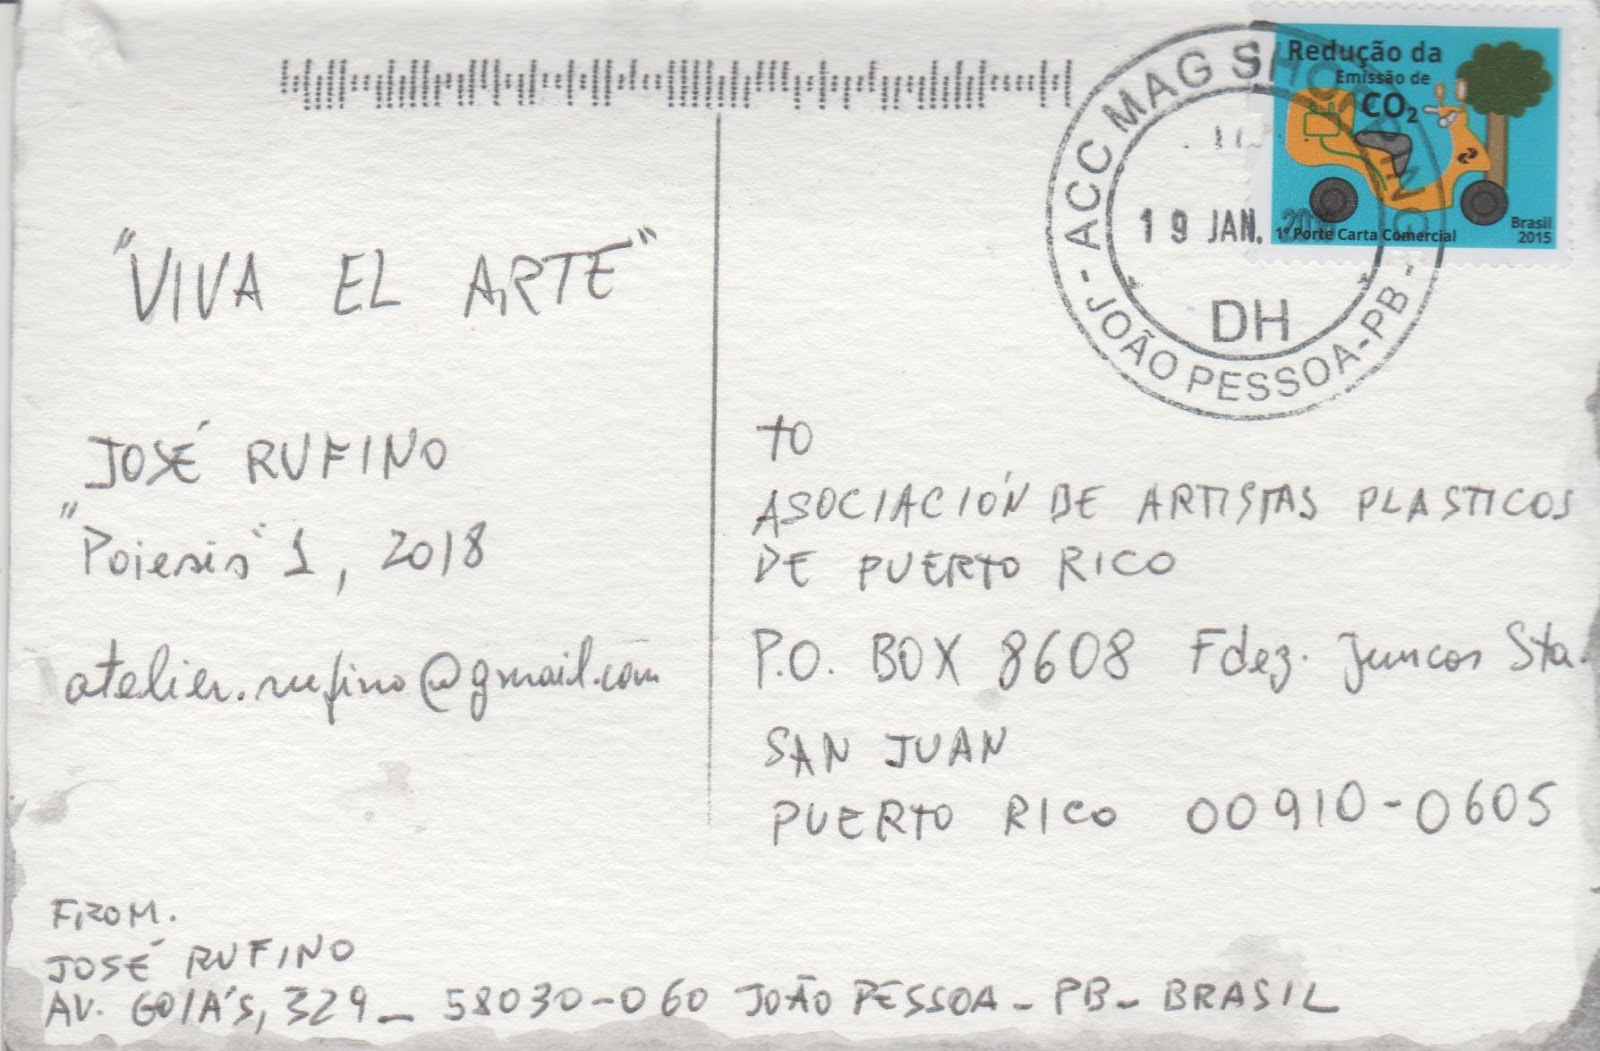 "VIVA EL ARTE"
JOSÉ RUFINO
"Poiesis" 1, 2018
atelier.rufino@gmail.com
FROM.
JOSÉ RUFINO
AV. GOIÁS, 329_ 58030-060 JOÃO PESSOA - PB - BRASIL
ACC MAG SHOPPING
19 JAN.
DH
- JOÃO PESSOA-PB -
Redução da
Emissão de
CO₂
Brasil
2015
1º Porte Carta Comercial
TO
ASOCIACIÓN DE ARTISTAS PLASTICOS
DE PUERTO RICO
P.O. BOX 8608 Fdez. Juncos Sta.
SAN JUAN
PUERTO RICO 00910-0605